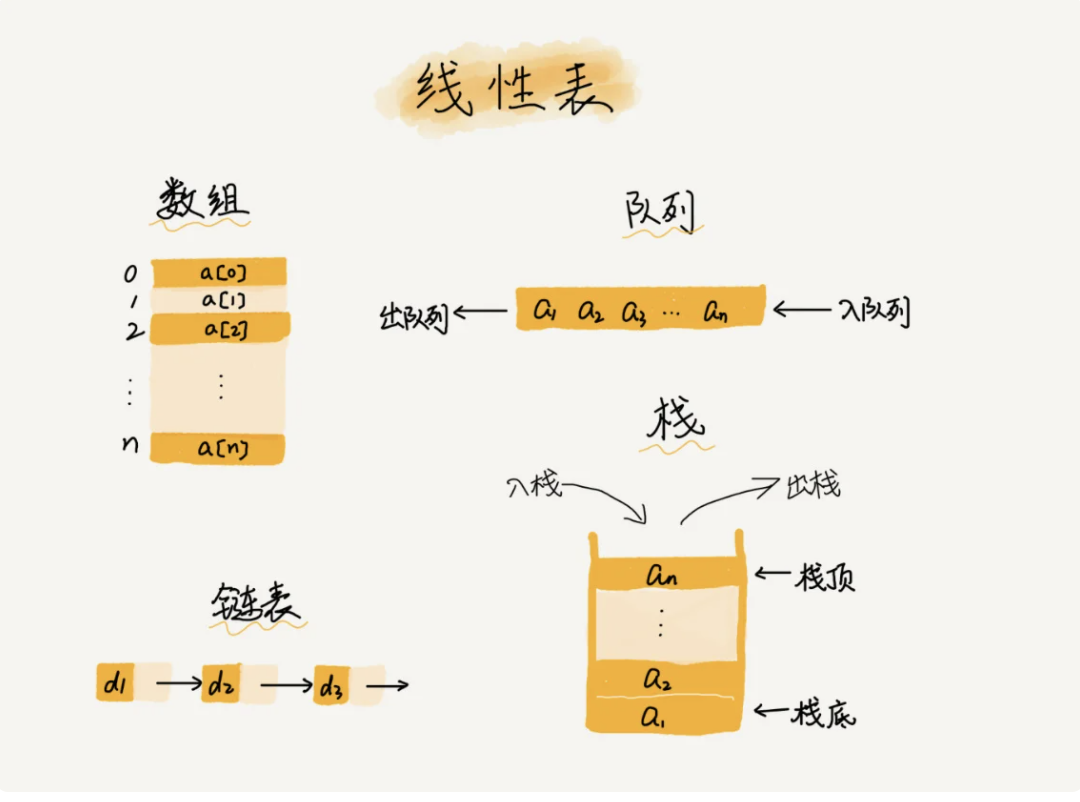 线性表
数组
0 a[0]
1 a[1]
2 a[2]
⋮ ⋮
n a[n]
队列
出队列 a₁ a₂ a₃ … aₙ 入队列
栈
入栈 出栈
aₙ 栈顶
⋮
a₂
a₁ 栈底
链表
d₁ d₂ d₃